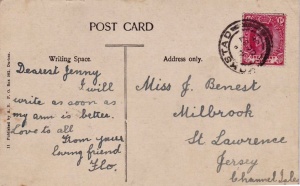 POST CARD
Writing Space.
Address only.
Dearest Jenny
I will
write as soon as
my arm is better.
Love to all
From your
loving friend
Flo.
Miss J. Benest
Millbrook
St Lawrence
Jersey
Channel Isles
KOKSTAD